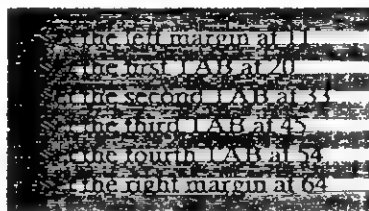 Set the left margin at 11
Set the first TAB at 20
Set the second TAB at 33
Set the third TAB at 45
Set the fourth TAB at 54
Set the right margin at 64